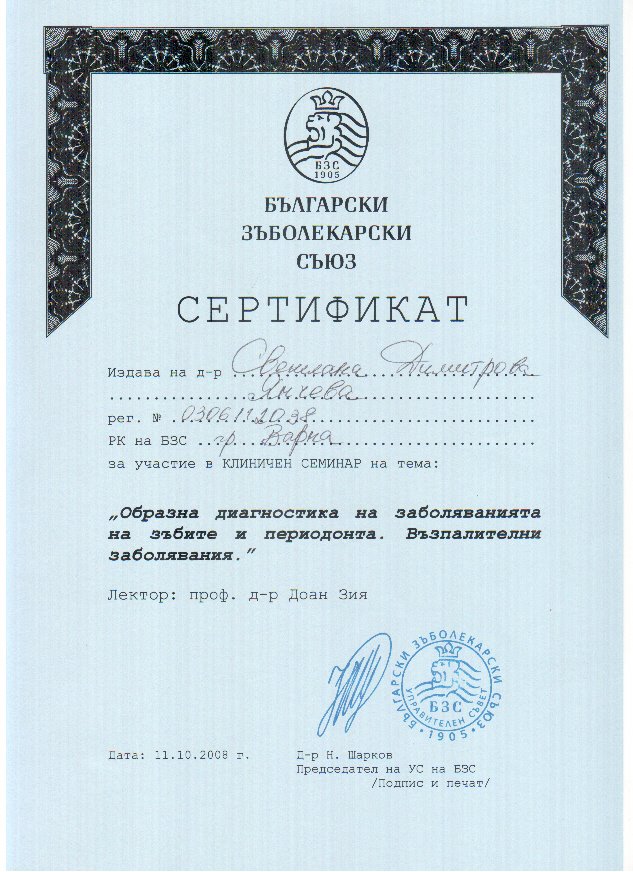 БЗС
1905
БЪЛГАРСКИ
ЗЪБОЛЕКАРСКИ
СЪЮЗ
СЕРТИФИКАТ
Издава на д-р Светлана Димитрова
Янчева
рег. № 0306112038
РК на БЗС гр. Варна
за участие в КЛИНИЧЕН СЕМИНАР на тема:
„Образна диагностика на заболяванията
на зъбите и периодонта. Възпалителни
заболявания.”
Лектор: проф. д-р Доан Зия
БЪЛГАРСКИ ЗЪБОЛЕКАРСКИ СЪЮЗ
УПРАВИТЕЛЕН СЪВЕТ
БЗС
1905
Дата: 11.10.2008 г.
Д-р Н. Шарков
Председател на УС на БЗС
/Подпис и печат/